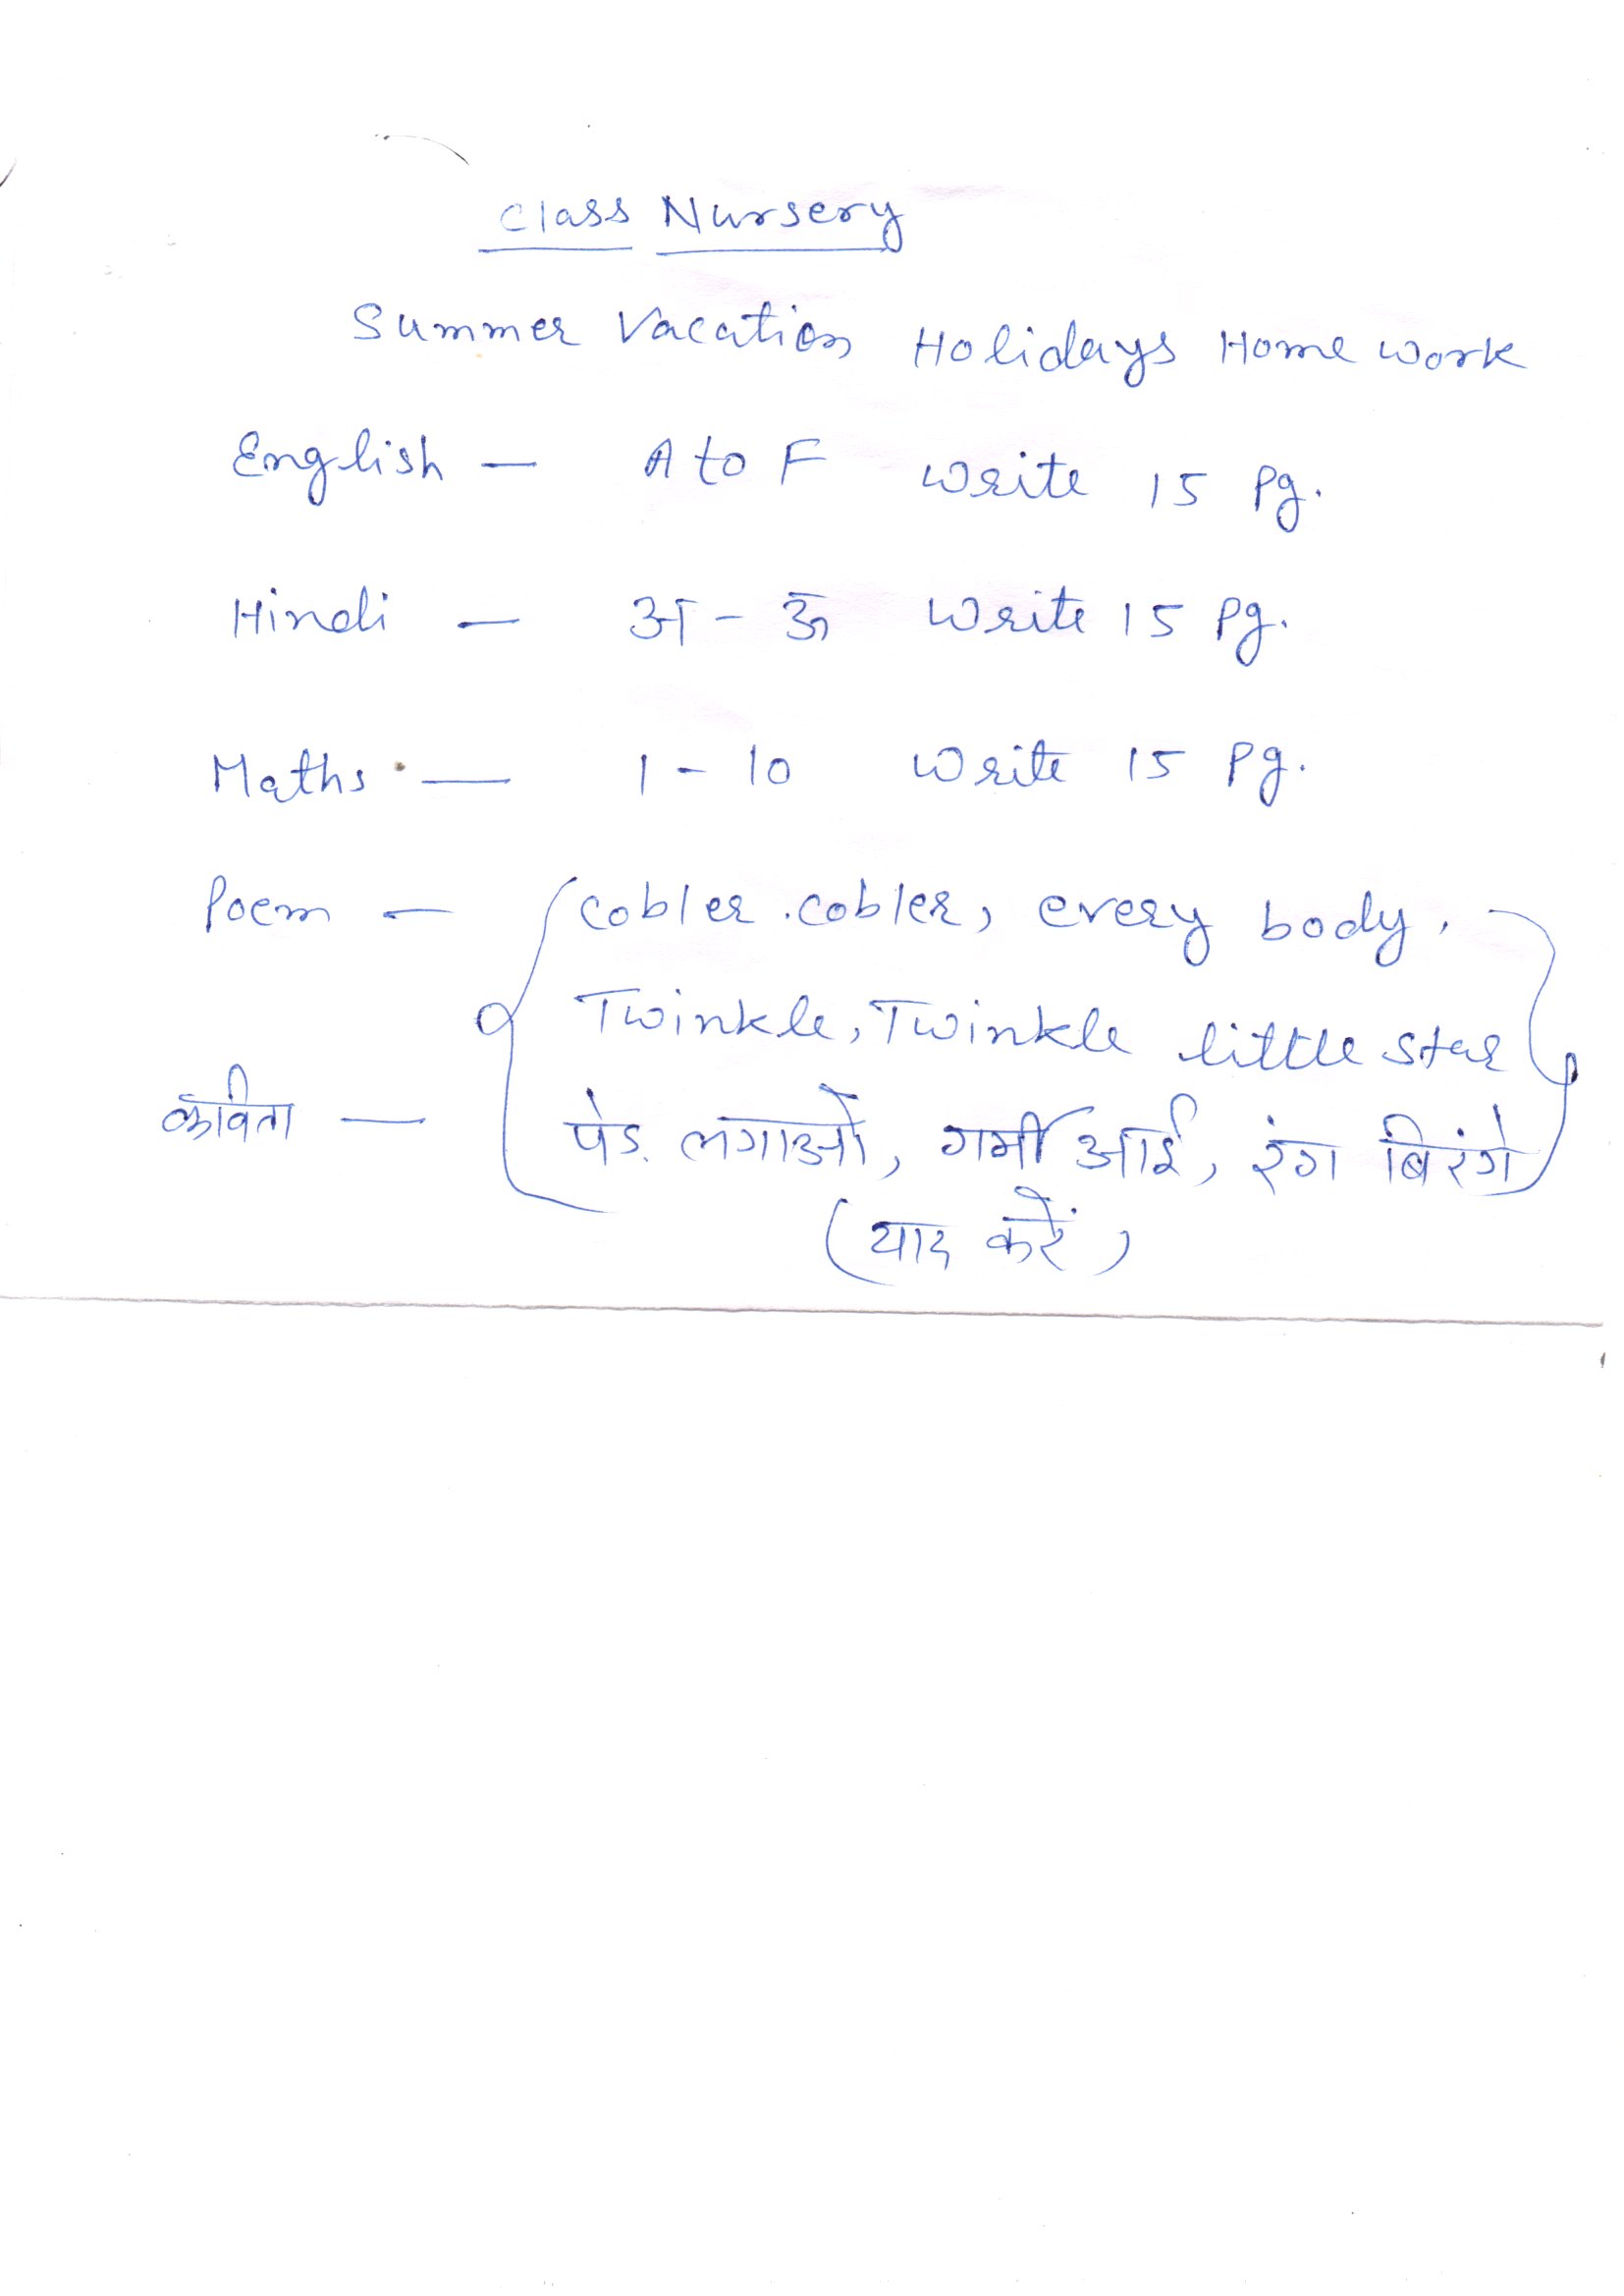 Class Nursery
Summer Vacation Holidays Home work
English — A to F Write 15 Pg.
Hindi — अ - ऊ Write 15 Pg.
Maths — 1 - 10 Write 15 Pg.
Poem — cobler cobler, every body.
Twinkle, Twinkle little star
कविता — पेड़ लगाओ, गर्मी आई, रंग बिरंगे
(याद करें)